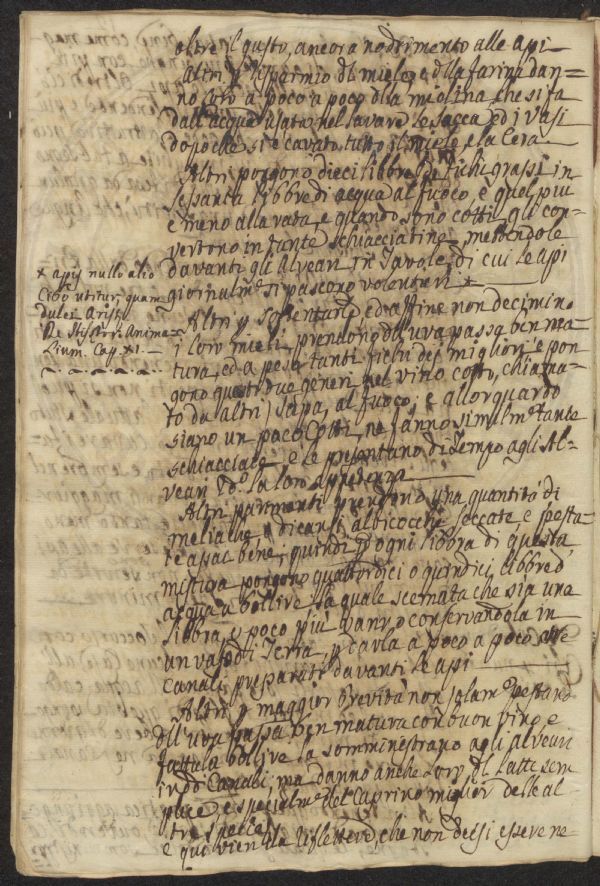 oltre il gusto, ancora nodrimento alle api
Altri p risparmio dl miele, e dlla farina dan=
no loro à poco à poco dlla mielina, che si fà
dall'acqua usata nel lavare le sacca, ed i vasi
dopo che si è cavato tutto il miele, e la Cera
Altri pongono dieci libbre di fichi grassi in
sessanta libbre di acqua al fuoco, e quel più
e meno alla rata, e quando sono cotti, gli con=
vertono in tante schiacciatine, mettendole
davanti gli Alveari in Tavole, di cui le api
giornalmte si pascono volentieri x
x apis nullo alio
Cibo utitur, quam
dulci Arist.
De Histori: Anima=
lium. Cap. XI.
Altri p sostentarle, ed affine non decimino
i loro mieli, prendono dl'uva passa ben ma=
tura, ed a peso tanti fichi dei migliori e pon=
gono questi due generi nel vino cotto, chiama=
to da altri sapa, al fuoco; e allor quando
siano un poco cotti, ne fanno similmte tante
schiacciate, e le presentano di tempo agli Al=
veari
Altri parimenti prendono una quantità di
meliache, o dicansi albicocche, seccate e pesta=
te assai bene, quindi p ogni libbra di questa
mistura pongono quattordici o quindici libbre d'
acqua a bollire la quale scemata che sia una
libbra, o poco più conservandola in
un vaso di Terra, p darla a poco a poco
Canali preparati davanti le api
Altri p maggior brevità non solamte
dll'uva passa ben matura con buon vino, e
fattala bollire la somministrano agli alveari
in dd. Canali, ma danno anche loro dl latte sem
plice, e specialmte del Caprino miglior delle al=
tre specie
e quì vien da riflettere, che non deesi essere ne=